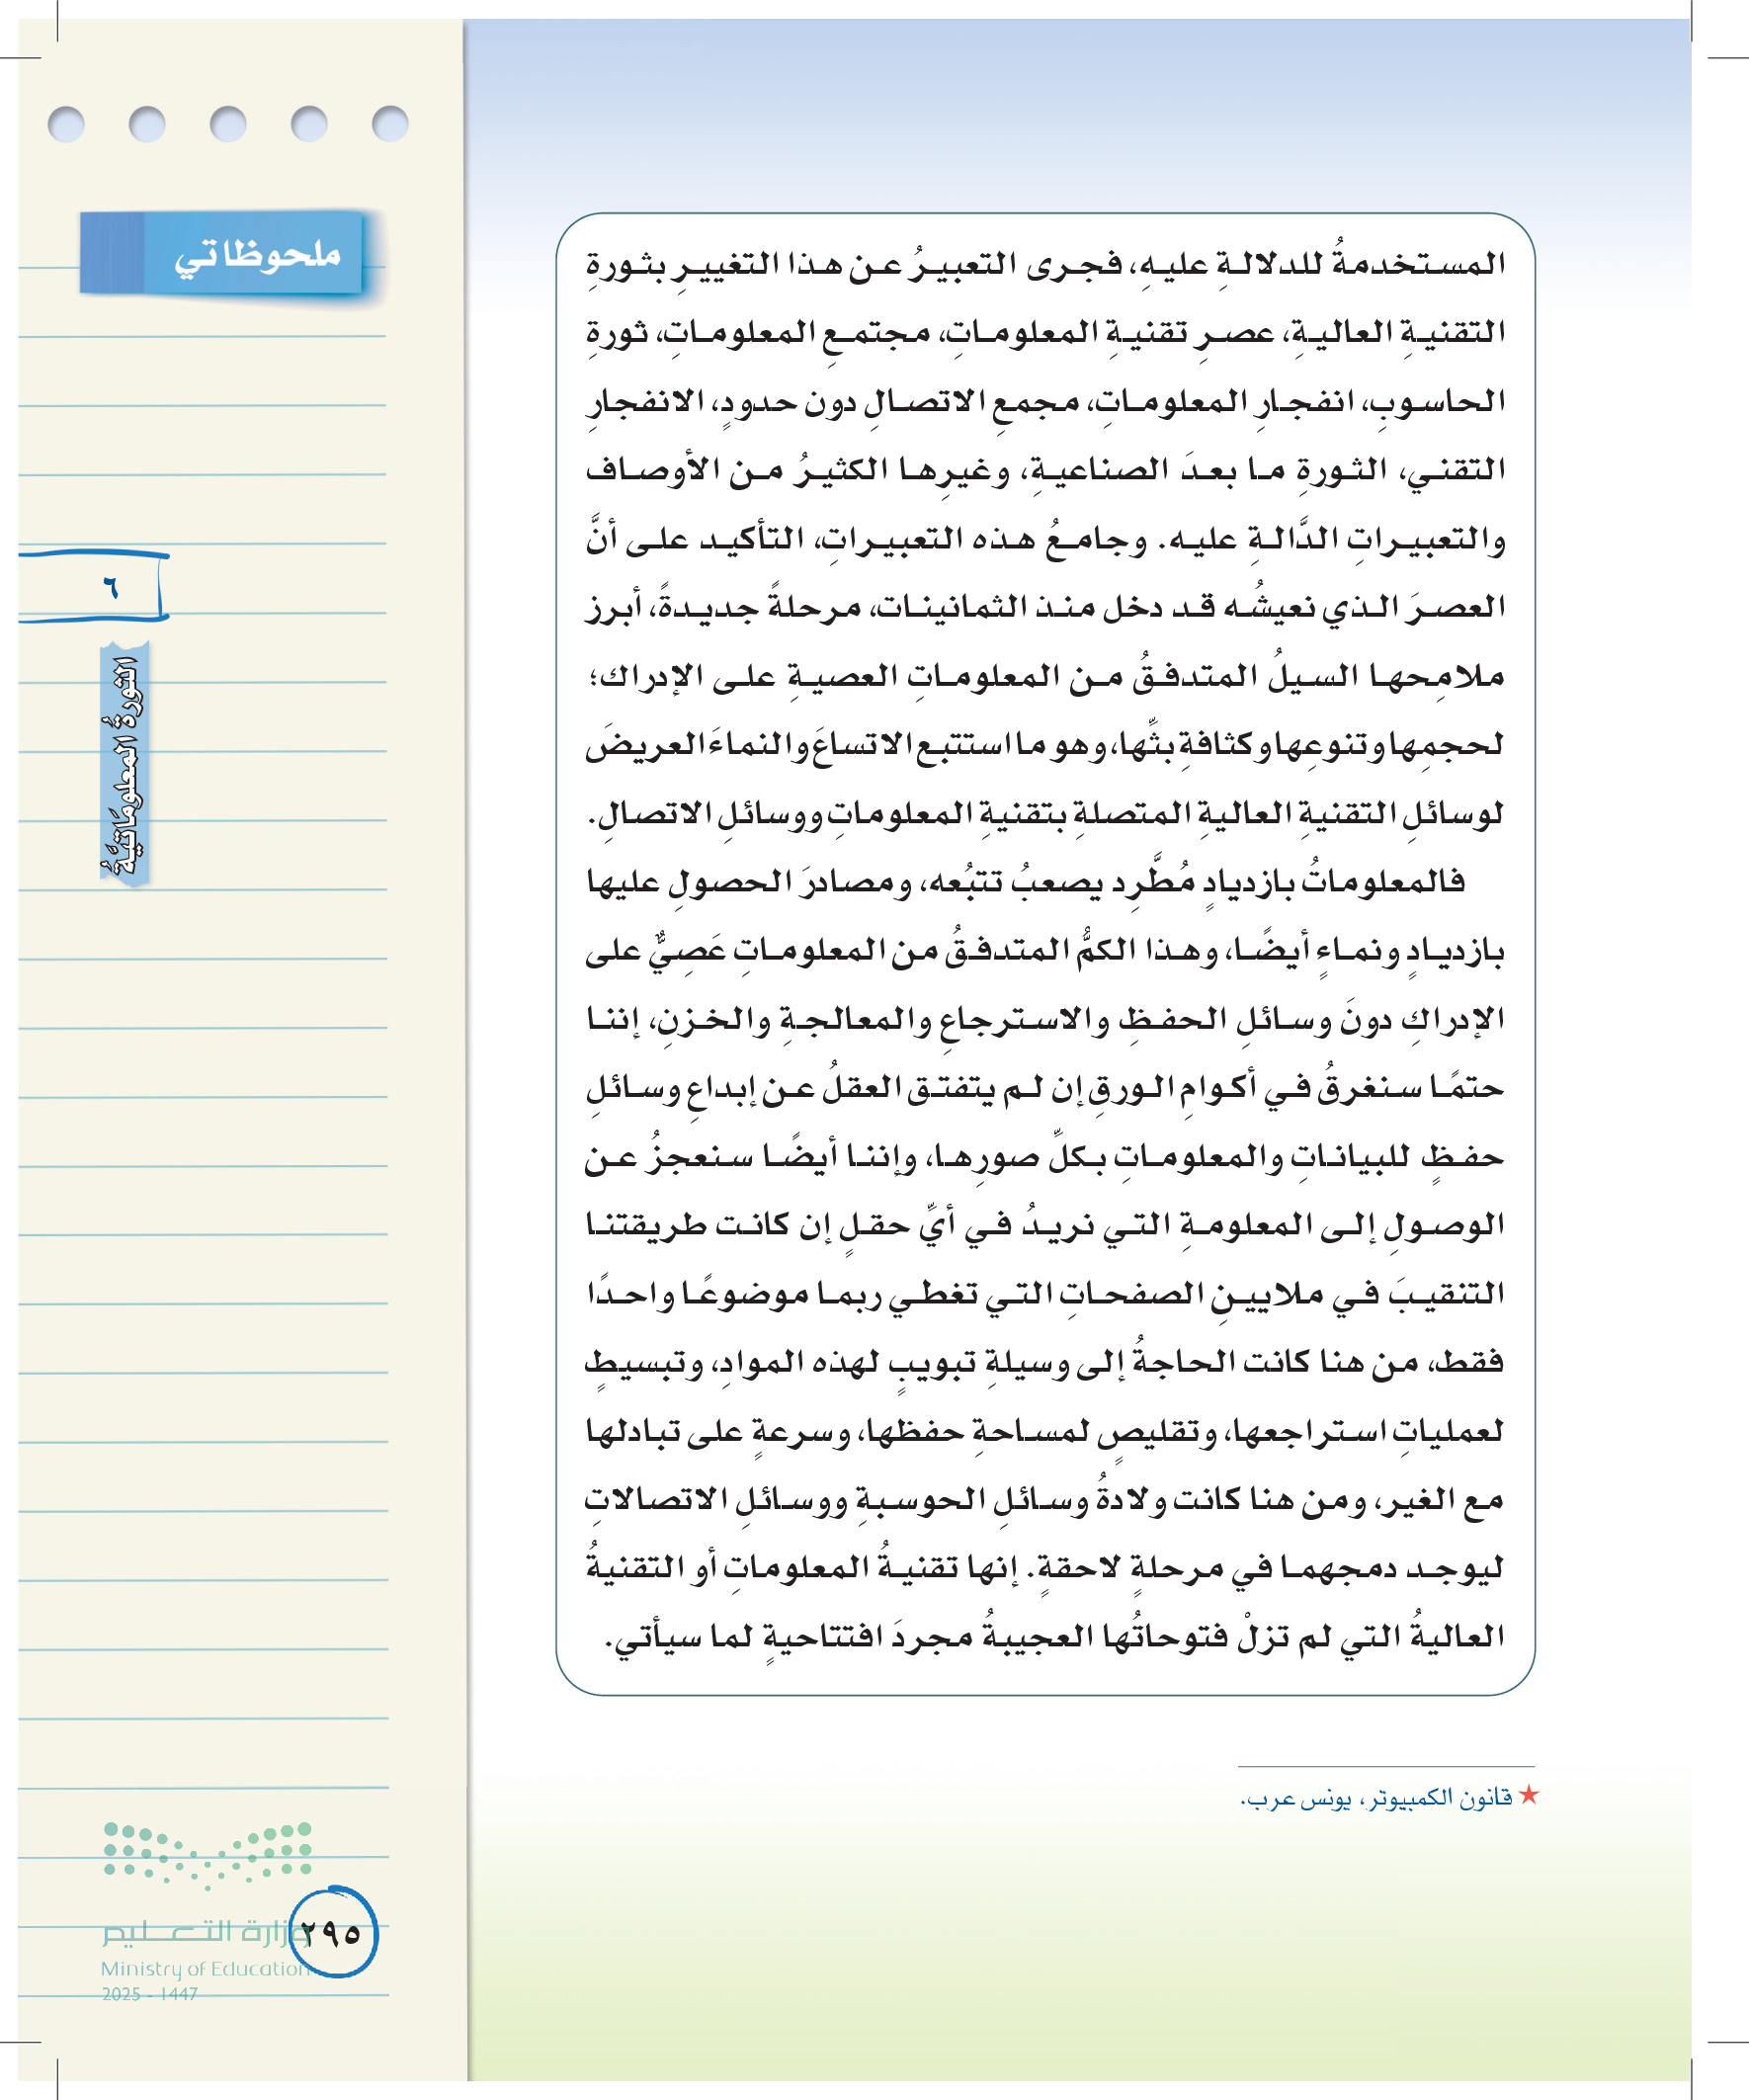 المستخدمةُ للدلالةِ عليهِ، فجرى التعبيرُ عن هذا التغييرِ بثورةِ
التقنيةِ العاليةِ، عصرِ تقنيةِ المعلوماتِ، مجتمعِ المعلوماتِ، ثورةِ
الحاسوبِ، انفجارِ المعلوماتِ، مجمعِ الاتصالِ دون حدودٍ، الانفجارِ
التقني، الثورةِ ما بعدَ الصناعيةِ، وغيرِها الكثيرُ من الأوصاف
والتعبيراتِ الدَّالةِ عليه. وجامعُ هذه التعبيراتِ، التأكيد على أنَّ
العصرَ الذي نعيشُه قد دخل منذ الثمانينات، مرحلةً جديدةً، أبرز
ملامِحها السيلُ المتدفقُ من المعلوماتِ العصيةِ على الإدراك؛
لحجمِها وتنوعِها وكثافةِ بثِّها، وهو ما استتبع الاتساعَ والنماءَ العريضَ
لوسائلِ التقنيةِ العاليةِ المتصلةِ بتقنيةِ المعلوماتِ ووسائلِ الاتصالِ.
فالمعلوماتُ بازديادٍ مُطَّرِد يصعبُ تتبُعه، ومصادرَ الحصولِ عليها
بازديادٍ ونماءٍ أيضًا، وهذا الكمُّ المتدفقُ من المعلوماتِ عَصِيٌّ على
الإدراكِ دونَ وسائلِ الحفظِ والاسترجاعِ والمعالجةِ والخزنِ، إننا
حتمًا سنغرقُ في أكوامِ الورقِ إن لم يتفتق العقلُ عن إبداعِ وسائلِ
حفظٍ للبياناتِ والمعلوماتِ بكلِّ صورِها، وإننا أيضًا سنعجزُ عن
الوصولِ إلى المعلومةِ التي نريدُ في أيِّ حقلٍ إن كانت طريقتنا
التنقيبَ في ملايينِ الصفحاتِ التي تغطي ربما موضوعًا واحدًا
فقط، من هنا كانت الحاجةُ إلى وسيلةِ تبويبٍ لهذه الموادِ، وتبسيطٍ
لعملياتِ استراجعها، وتقليصٍ لمساحةِ حفظها، وسرعةٍ على تبادلها
مع الغير، ومن هنا كانت ولادةُ وسائلِ الحوسبةِ ووسائلِ الاتصالاتِ
ليوجد دمجهما في مرحلةٍ لاحقةٍ. إنها تقنيةُ المعلوماتِ أو التقنيةُ
العاليةُ التي لم تزلْ فتوحاتُها العجيبةُ مجردَ افتتاحيةٍ لما سيأتي.
★ قانون الكمبيوتر، يونس عرب.
ملحوظاتي
٦
الثورةُ المعلومَاتيَّةُ
وزارة التعليم
Ministry of Education
2025 - 1447
٢٩٥